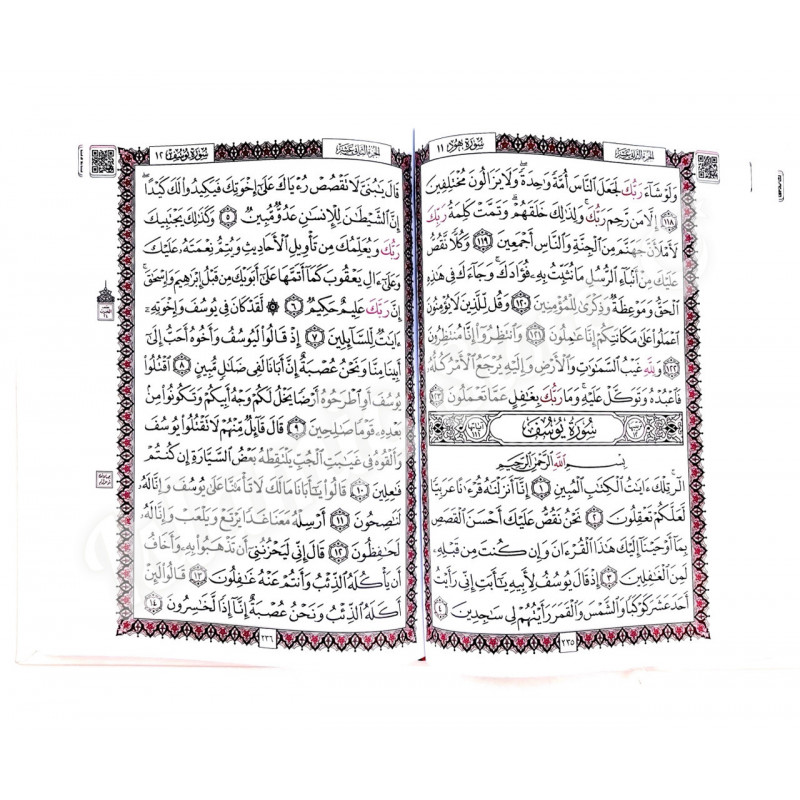 سُورَةُ هُودٍ ١١
الجُزْءُ الثَّانِي عَشَرَ
وَلَوْ شَآءَ رَبُّكَ لَجَعَلَ ٱلنَّاسَ أُمَّةً وَٰحِدَةً وَلَا يَزَالُونَ مُخْتَلِفِينَ
١١٨ إِلَّا مَن رَّحِمَ رَبُّكَ وَلِذَٰلِكَ خَلَقَهُمْ وَتَمَّتْ كَلِمَةُ رَبِّكَ
لَأَمْلَأَنَّ جَهَنَّمَ مِنَ ٱلْجِنَّةِ وَٱلنَّاسِ أَجْمَعِينَ ١١٩ وَكُلًّا نَّقُصُّ
عَلَيْكَ مِنْ أَنۢبَآءِ ٱلرُّسُلِ مَا نُثَبِّتُ بِهِۦ فُؤَادَكَ وَجَآءَكَ فِى هَٰذِهِ
ٱلْحَقُّ وَمَوْعِظَةٌ وَذِكْرَىٰ لِلْمُؤْمِنِينَ ١٢٠ وَقُل لِّلَّذِينَ لَا يُؤْمِنُونَ
ٱعْمَلُوا۟ عَلَىٰ مَكَانَتِكُمْ إِنَّا عَٰمِلُونَ ١٢١ وَٱنتَظِرُوٓا۟ إِنَّا مُنتَظِرُونَ
١٢٢ وَلِلَّهِ غَيْبُ ٱلسَّمَٰوَٰتِ وَٱلْأَرْضِ وَإِلَيْهِ يُرْجَعُ ٱلْأَمْرُ كُلُّهُۥ
فَٱعْبُدْهُ وَتَوَكَّلْ عَلَيْهِ وَمَا رَبُّكَ بِغَٰفِلٍ عَمَّا تَعْمَلُونَ ١٢٣
سُورَةُ يُوسُفَ
بِسْمِ ٱللَّهِ ٱلرَّحْمَٰنِ ٱلرَّحِيمِ
الٓر تِلْكَ ءَايَٰتُ ٱلْكِتَٰبِ ٱلْمُبِينِ ١ إِنَّآ أَنزَلْنَٰهُ قُرْءَٰنًا عَرَبِيًّا
لَّعَلَّكُمْ تَعْقِلُونَ ٢ نَحْنُ نَقُصُّ عَلَيْكَ أَحْسَنَ ٱلْقَصَصِ
بِمَآ أَوْحَيْنَآ إِلَيْكَ هَٰذَا ٱلْقُرْءَانَ وَإِن كُنتَ مِن قَبْلِهِۦ
لَمِنَ ٱلْغَٰفِلِينَ ٣ إِذْ قَالَ يُوسُفُ لِأَبِيهِ يَٰٓأَبَتِ إِنِّى رَأَيْتُ
أَحَدَ عَشَرَ كَوْكَبًا وَٱلشَّمْسَ وَٱلْقَمَرَ رَأَيْتُهُمْ لِى سَٰجِدِينَ ٤
٢٣٥
الجُزْءُ الثَّانِي عَشَرَ
سُورَةُ يُوسُفَ ١٢
قَالَ يَٰبُنَىَّ لَا تَقْصُصْ رُءْيَاكَ عَلَىٰٓ إِخْوَتِكَ فَيَكِيدُوا۟ لَكَ كَيْدًا
إِنَّ ٱلشَّيْطَٰنَ لِلْإِنسَٰنِ عَدُوٌّ مُّبِينٌ ٥ وَكَذَٰلِكَ يَجْتَبِيكَ
رَبُّكَ وَيُعَلِّمُكَ مِن تَأْوِيلِ ٱلْأَحَادِيثِ وَيُتِمُّ نِعْمَتَهُۥ عَلَيْكَ
وَعَلَىٰٓ ءَالِ يَعْقُوبَ كَمَآ أَتَمَّهَا عَلَىٰٓ أَبَوَيْكَ مِن قَبْلُ إِبْرَٰهِيمَ وَإِسْحَٰقَ
إِنَّ رَبَّكَ عَلِيمٌ حَكِيمٌ ٦ ۞ لَّقَدْ كَانَ فِى يُوسُفَ وَإِخْوَتِهِۦٓ
ءَايَٰتٌ لِّلسَّآئِلِينَ ٧ إِذْ قَالُوا۟ لَيُوسُفُ وَأَخُوهُ أَحَبُّ إِلَىٰٓ
أَبِينَا مِنَّا وَنَحْنُ عُصْبَةٌ إِنَّ أَبَانَا لَفِى ضَلَٰلٍ مُّبِينٍ ٨ ٱقْتُلُوا۟
يُوسُفَ أَوِ ٱطْرَحُوهُ أَرْضًا يَخْلُ لَكُمْ وَجْهُ أَبِيكُمْ وَتَكُونُوا۟ مِنۢ
بَعْدِهِۦ قَوْمًا صَٰلِحِينَ ٩ قَالَ قَآئِلٌ مِّنْهُمْ لَا تَقْتُلُوا۟ يُوسُفَ
وَأَلْقُوهُ فِى غَيَٰبَتِ ٱلْجُبِّ يَلْتَقِطْهُ بَعْضُ ٱلسَّيَّارَةِ إِن كُنتُمْ
فَٰعِلِينَ ١٠ قَالُوا۟ يَٰٓأَبَانَا مَا لَكَ لَا تَأْمَ۫نَّا عَلَىٰ يُوسُفَ وَإِنَّا لَهُۥ
لَنَٰصِحُونَ ١١ أَرْسِلْهُ مَعَنَا غَدًا يَرْتَعْ وَيَلْعَبْ وَإِنَّا لَهُۥ
لَحَٰفِظُونَ ١٢ قَالَ إِنِّى لَيَحْزُنُنِىٓ أَن تَذْهَبُوا۟ بِهِۦ وَأَخَافُ
أَن يَأْكُلَهُ ٱلذِّئْبُ وَأَنتُمْ عَنْهُ غَٰفِلُونَ ١٣ قَالُوا۟ لَئِنْ
أَكَلَهُ ٱلذِّئْبُ وَنَحْنُ عُصْبَةٌ إِنَّآ إِذًا لَّخَٰسِرُونَ ١٤
٢٣٦